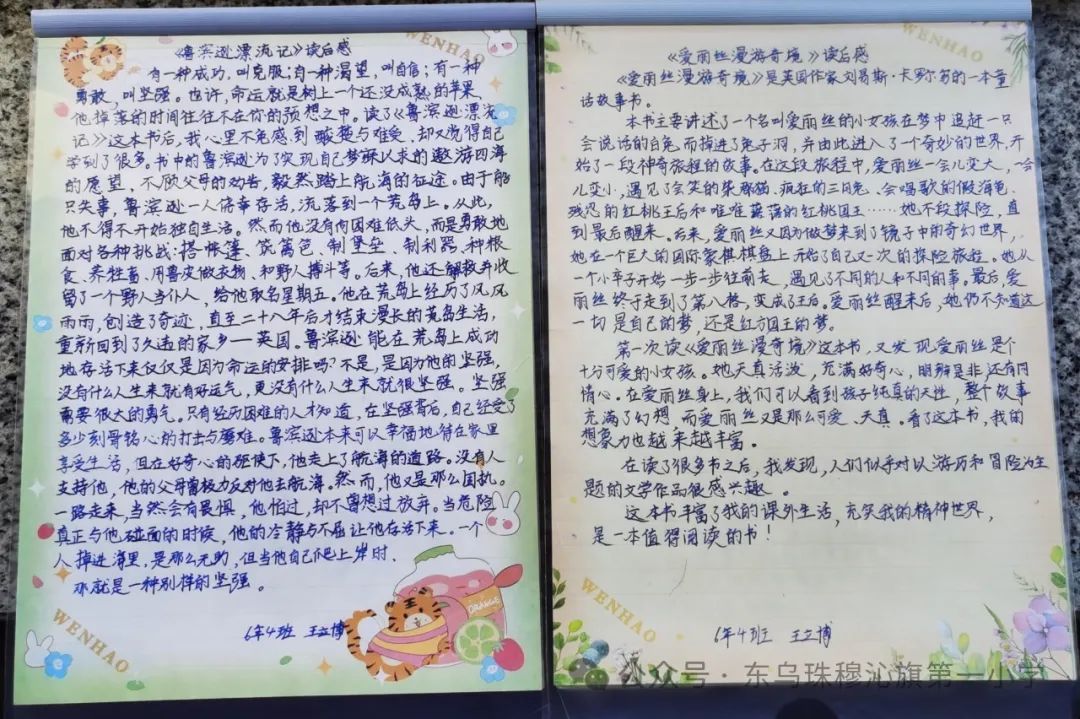 WENHAO
《鲁滨逊漂流记》读后感
有一种成功,叫克服;有一种渴望,叫自信;有一种
勇敢,叫坚强。也许,命运就是树上一个还没成熟的苹果,
他掉落的时间往往不在你的预想之中。读了《鲁滨逊漂流
记》这本书后,我心里不免感到酸楚与难受,却又觉得自己
学到了很多。书中的鲁滨逊为了实现自己梦寐以求的遨游四海
的愿望,不顾父母的劝告,毅然踏上航海的征途。由于船
只失事,鲁滨逊一人侥幸存活,流落到一个荒岛上。从此,
他不得不开始独自生活。然而他没有向困难低头,而是勇敢地
面对各种挑战:搭帐篷、筑篱笆、制堡垒、制利器、种粮
食、养牲畜、用兽皮做衣物、和野人搏斗等。后来,他还解救并收
留了一个野人当仆人,给他取名星期五。他在荒岛上经历了风风
雨雨,创造了奇迹,直至二十八年后才结束漫长的荒岛生活,
重新回到了久违的家乡—英国。鲁滨逊能在荒岛上成功
地存活下来仅仅是因为命运的安排吗?不是,是因为他的坚强,
没有什么人生来就有好运气,更没有什么人生来就很坚强。坚强
需要很大的勇气。只有经历困难的人才知道,在坚强背后,自己经受了
多少刻骨铭心的打击与磨难。鲁滨逊本来可以幸福地待在家里
享受生活,但在好奇心的驱使下,他走上了航海的道路。没有人
支持他,他的父母曾极力反对他去航海。然而,他又是那么固执。
一路走来,当然会有畏惧,他怕过,却不曾想过放弃。当危险
真正与他碰面的时候,他的冷静与不屈让他存活下来。一个
人掉进海里,是那么无助,但当他自己爬上岸时,
那就是一种别样的坚强。
ORANGE
6年4班 王立博
WENHAO
WENHAO
《爱丽丝漫游奇境》读后感
《爱丽丝漫游奇境》是英国作家刘易斯·卡罗尔写的一本童
话故事书。
本书主要讲述了一个名叫爱丽丝的小女孩在梦中追赶一只
会说话的白兔而掉进了兔子洞,并由此进入了一个奇妙的世界,开
始了一段神奇旅程的故事。在这段旅程中,爱丽丝一会儿变大,一会
儿变小,遇见了会笑的柴郡猫、疯狂的三月兔、会唱歌的假海龟、
残忍的红桃王后和唯唯诺诺的红桃国王……她不段探险,直
到最后醒来。后来,爱丽丝又因为做梦来到了镜子中的奇幻世界,
她在一个巨大的国际象棋棋盘上开始了自己又一次的探险旅程。她从
一个小卒子开始一步一步往前走,遇见了不同的人和不同的事。最后,爱
丽丝终于走到了第八格,变成了王后。爱丽丝醒来后,她仍不知道这
一切是自己的梦,还是红方国王的梦。
第一次读《爱丽丝漫奇境》这本书,又发现爱丽丝是个
十分可爱的小女孩。她天真活泼,充满好奇心,明辨是非,还有同
情心。在爱丽丝身上,我们可以看到孩子纯真的天性,整个故事
充满了幻想,而爱丽丝又是那么可爱、天真。看了这本书,我的
想象力也越来越丰富。
在读了很多书之后,我发现,人们似乎对以游历和冒险为主
题的文学作品很感兴趣。
这本书丰富了我的课外生活,充实我的精神世界,
是一本值得阅读的书!
WENHAO
6年4班 王立博
WENHAO
公众号·东乌珠穆沁旗第一小学